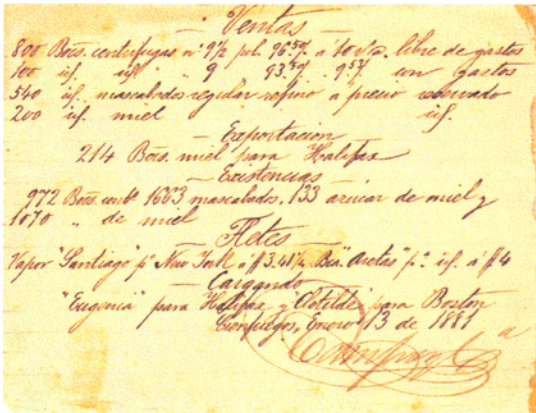 Ventas
800 Bocs. centrífugas nº 9½ pol. 96.50 a 10 rs. libre de gastos
100 id. id. " 9 93.50 " 9.53 con gastos
540 id. mascabados regular refino a precio reservado
200 id. miel id.
Exportacion
214 Bocs. miel para Halifax
Existencias
972 Bocs. centfs 1663 mascabados, 133 azucar de miel y
1070 " de miel
Fletes
Vapor "Santiago" pª New York á $3.41½ Bca. "Aretas" pª id. á $4
Cargando
"Eugenia" para Halifax y "Clotilde" para Boston
Cienfuegos, Enero 13 de 1881